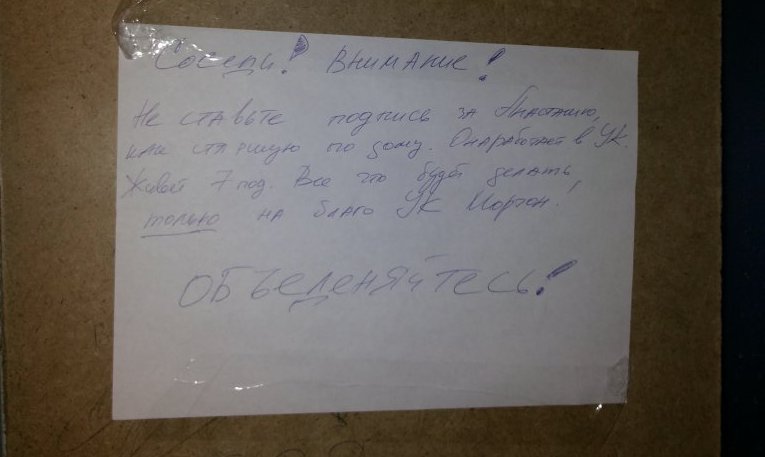 Соседи! Внимание!
Не ставьте подпись за Анастасию,
как старшую по дому. Она работает в УК.
Живёт 7 под. Все что будет делать
только на благо УК Мортон!
ОБЪеДеняйтесь!